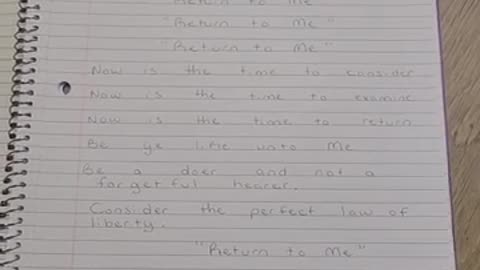 Return to Me
"Return to Me"
"Return to Me"
Now is the time to consider
Now is the time to examine
Now is the time to return
Be ye like unto Me
Be a doer and not a
forgetful hearer.
Consider the perfect law of
liberty.
"Return to Me"